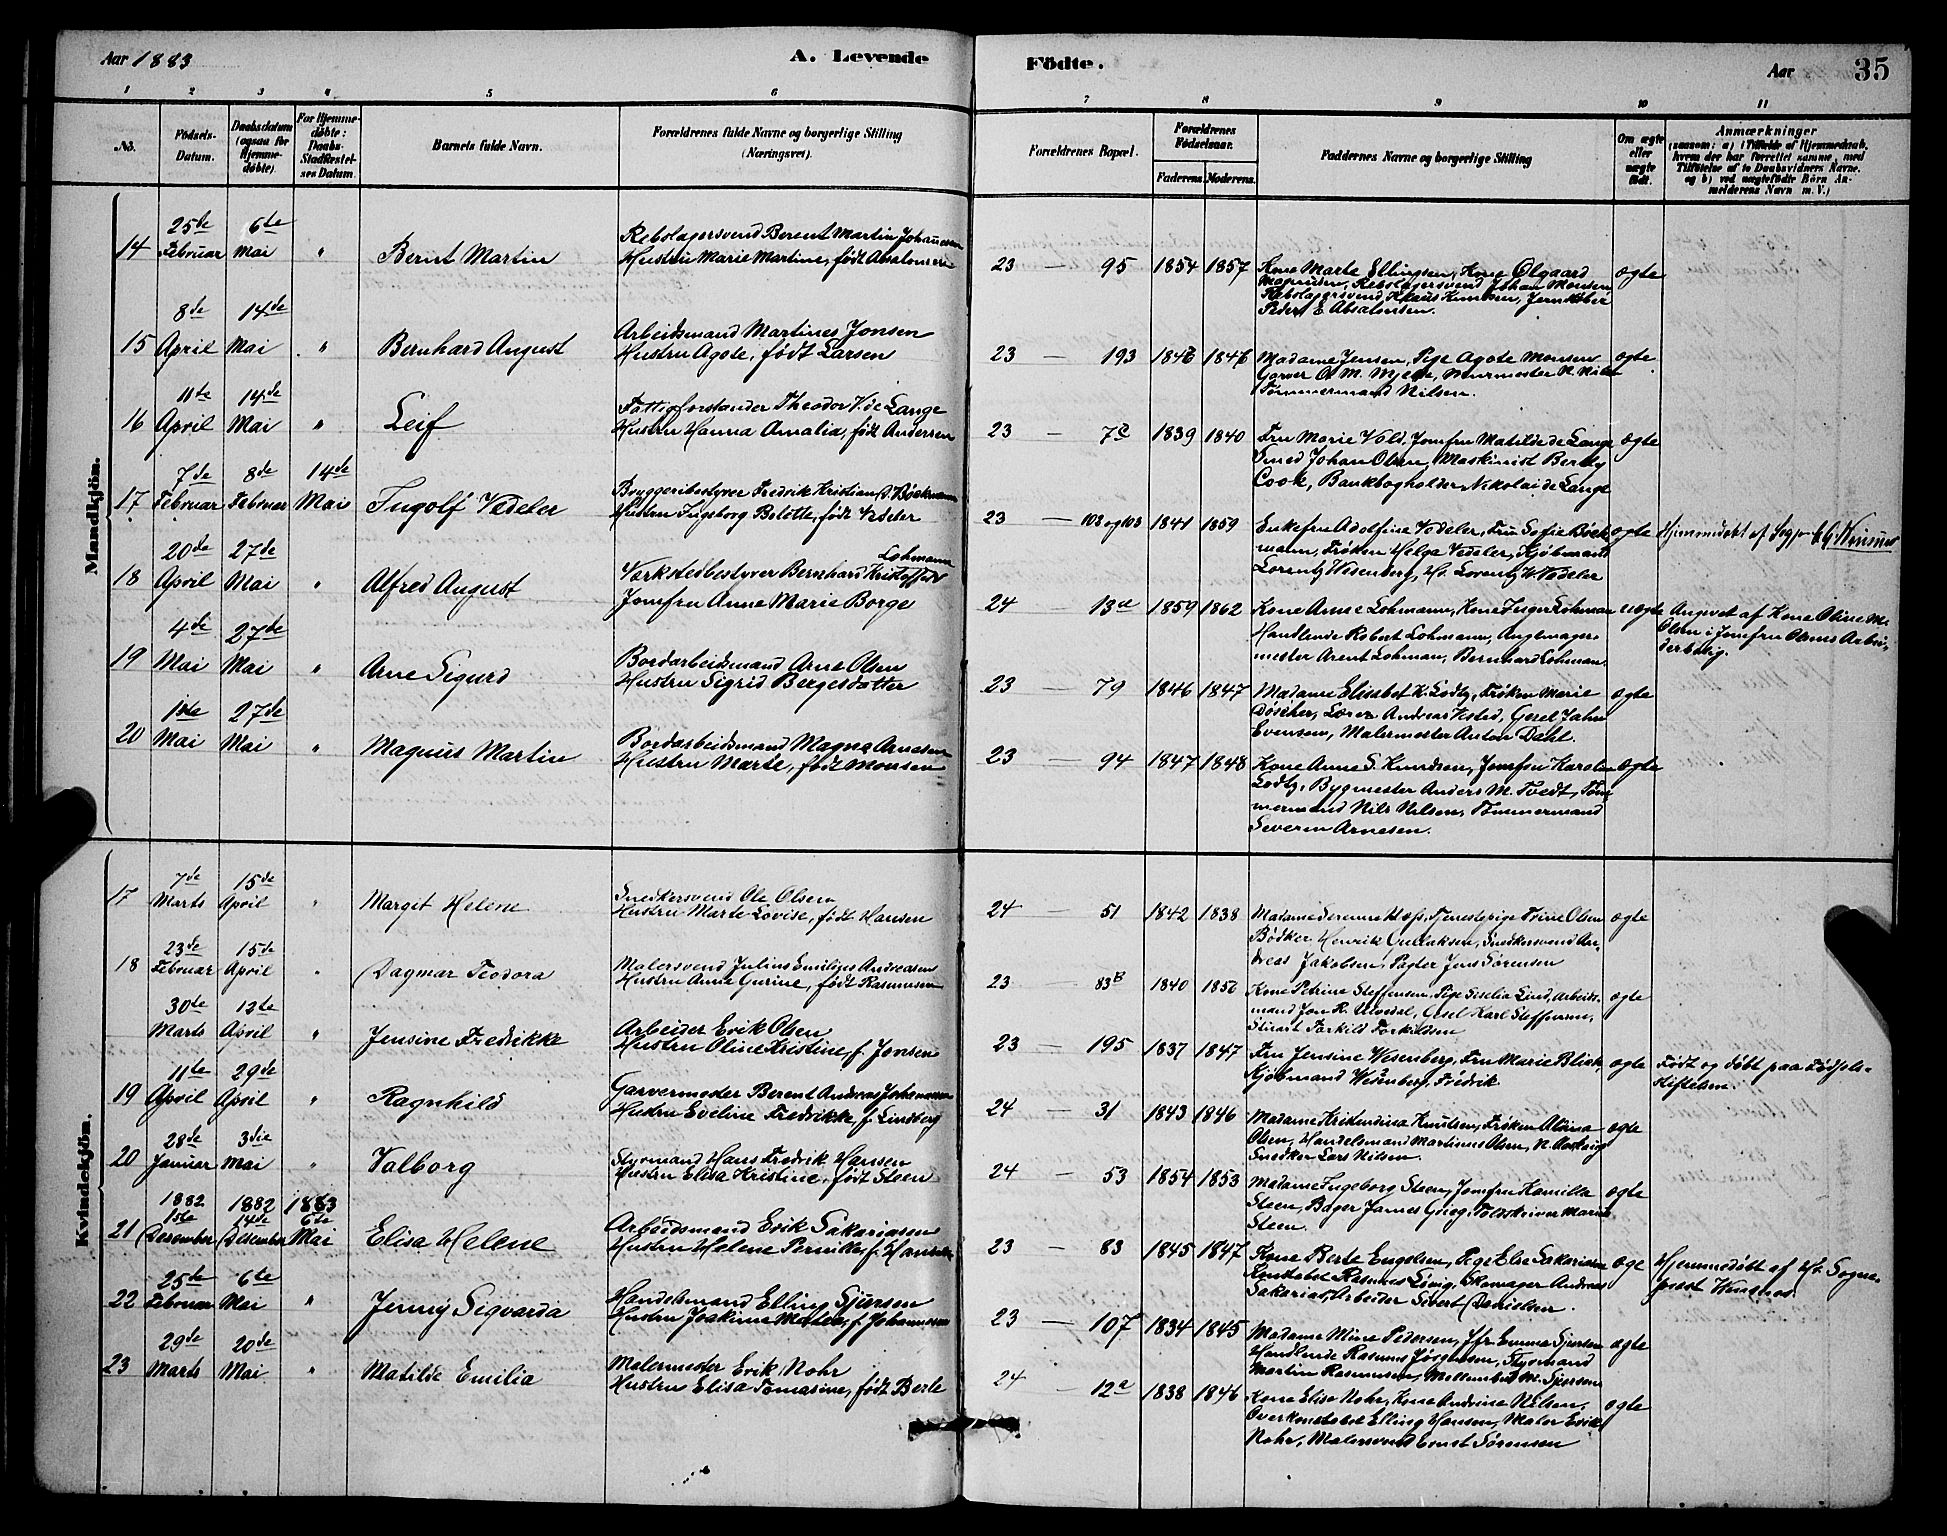 Aar 1883
A. Levende
Födte.
Aar
35
1 2 3 4 5 6 7 8 9 10 11
No.
Födsels-Datum.
Daabsdatum (ogsaa for Hjemme-döbte).
For Hjemme-döbte: Daabs-Stadfæstel-ses Datum.
Barnets fulde Navn.
Forældrenes fulde Navne og borgerlige Stilling (Næringsvei).
Forældrenes Bopæl.
Forældrenes Födselsaar.
Faderens. Moderens.
Faddernes Navne og borgerlige Stilling
Om ægte eller uægte födt.
Anmærkninger
(saasom: a) i Tilfælde af Hjemmedaab, hvem der har forrettet samme, med Tilföielse af to Daabsvidners Navne. og b) ved uægtefödte Börn An-melderens Navn m. V.)
Mandkjön.
14 25de Februar 6te Mai " Bernt Martin
Rebslagersvend Berent Martin Johannesen
Hustru Marie Martine, født Absalonsen
23 — 95 1854 1857
Kone Marte Ellingsen, Kone Olgaard
Magnusen, Rebslagersvend Johan Monsen
Rebslagersvend Klaus Knudsen, Jernstøber
Peder E Absalonsen.
ægte
15 8de April 14de Mai " Bernhard August
Arbeidsmand Martines Jonsen
Hustru Agote, født Larsen
23 — 193 1846 1846
Madame Jensen, Pige Agote Monsen
Garver O. M. Mjelde, Murmester N. Nilsen
Tømmermand Nilsen.
ægte
16 11te April 14de Mai " Leif
Fattigforstander Theodor V. de Lange
Hustru Hanna Amalia, født Andersen
23 — 7c 1839 1840
Fru Marie Vold, Jomfru Matilde de Lange
Smed Johan Olsen, Maskinist Berky
Cook, Bankbogholder Nikolai de Lange
ægte
17 7de Februar 8de Februar 14de Mai Ingolf Vedeler
Bryggeribestyrer Fredrik Kristian D. Böckmann
Hustru Ingeborg Belotte, født Vedeler
23 — 102 og 103 1841 1859
Enkefru Adolfine Vedeler, Fru Sofie Böck-
mann, Frøken Helga Vedeler, Kjøbmand
Lorentz Wesenberg, Hr. Lorentz W. Vedeler
ægte
Hjemmedøbt af Sogpr
18 20de April 27de Mai " Alfred August
Lohmann
Værkstedbestyrer Bernhard Kristoffer
Jomfru Anne Marie Borge
24 — 13d 1859 1862
Kone Anne Lohmann, Kone Inger Lohman
Handlende Robert Lohmann, Anglemager-
mester Arent Lohman, Bernhard Lohman.
uægte
Angivet af Kone Oline M.
Olsen i Jomfru Olsens Arbei-
derbolig.
19 4de Mai 27de Mai " Arne Sigurd
Bordarbeidsmand Arne Olsen
Hustru Sigrid Bergesdatter
23 — 79 1846 1847
Madame Elisabet K. Lodtz, Frøken Marie
Döscher, Lærer Andreas Vested, Gesel Jahn
Evensen, Malermester Anton Dahl.
ægte
20 1ste Mai 27de Mai " Magnus Martin
Bordarbeidsmand Magne Arnesen
Hustru Marte, født Monsen
23 — 94 1847 1848
Kone Anne S. Knudsen, Jomfru Karoline
Lodtz, Bygmester Anders M. Tvedt, Töm-
mermand Nils Nilsen, Tömmermand
Severin Arnesen.
ægte
Kvindekjön.
17 7de Marts 15de April " Margit Helene
Snedkersvend Ole Olsen
Hustru Marte Lovise, født Hansen
24 — 51 1842 1838
Madame Severine Hess, Tjenestepige Trine Olsen
Bødker Henrik Gullaksen, Snedkersvend An-
dreas Jakobsen, Pagter Jens Sørensen
ægte
18 23de Februar 15de April " Dagmar Teodora
Malersvend Julius Emilius Andreasen
Hustru Anne Gurine, født Rasmussen
23 — 83B 1840 1850
Kone Petrine Steffensen, Pige Seselia Lind, Arbeids-
mand Jon R. Ulvedal, Gesel Karl Steffensen,
Stuart Torkild Torkildsen
ægte
30te Marts 13te April " Jensine Fredrikke
Arbeider Erik Olsen
Hustru Oline Kristine, f. Jonsen
23 — 195 1837 1847
Fru Jensine Wesenberg, Fru Marie Blick
Kjøbmand Wesenberg, Fredrik
ægte
Født og døbt paa Fødsels-
stiftelsen.
19 11te April 29de April " Ragnhild
Garvermester Berent Andreas Johannesen
Hustru Eveline Fredrikke, f. Lindberg
24 — 31 1843 1846
Madame Kristensina Knutsen, Frøken Alvina
Olsen, Handelsmand Martinus Olsen,
Snedker Lars Nilsen.
ægte
20 28de Januar 3die Mai " Valborg
Styrmand Hans Fredrik Hansen
Hustru Elisa Kristine, født Steen
24 — 53 1854 1853
Madame Ingeborg Steen, Jomfru Kamilla
Steen, Bager James Grieg, Toldskriver Marius
Steen.
ægte
21 1882 1ste Desember 1882 14de Desember 1883 6te Mai Elisa Helene
Arbeidsmand Erik Sakariasen
Hustru Helene Pernille, f. Hansen
23 — 83 1845 1847
Kone Berte Engelsen, Pige Else Sakariasen
Konstabel Rasmus Lövig, Skomager Andreas
Sakarias, Arbeider Sivert Danielsen.
ægte
Hjemmedöbt af Hr. Sogne-
præst Wensnes.
22 25de Februar 6te Mai " Jenny Segvarda
Handelsmand Elling Sjursen
Hustru Joakime Matea, f. Johannesen
23 — 107 1834 1845
Madame Mine Pedersen, Jfr. Emma Sjursen
Handlende Rasmus Jørgensen, Styrmand
Martin Rasmussen, M. Sjursen
ægte
23 29de Marts 20de Mai " Matilde Emilia
Malermester Erik Nohr
Hustru Elisa Tomasine, født Berle
24 — 12a 1838 1846
Kone Elise Nohr, Kone Andrine Nilsen,
Overkonstabel Elling Hansen, Maler Erik
Nohr, Malersvend Ernst Sørensen
ægte